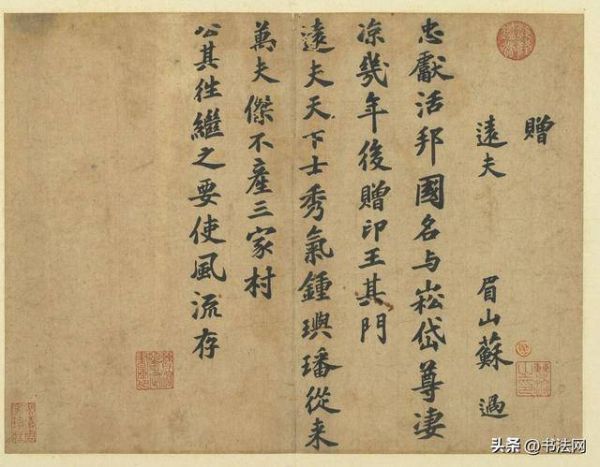 贈
遠夫　眉山蘇過
忠獻活邦國名与崧岱尊凄
凉幾年後贈印王其門
遠夫天下士秀氣鍾璵璠從来
萬夫傑不産三家村
公其往繼之要使風流存
头条 @书法网